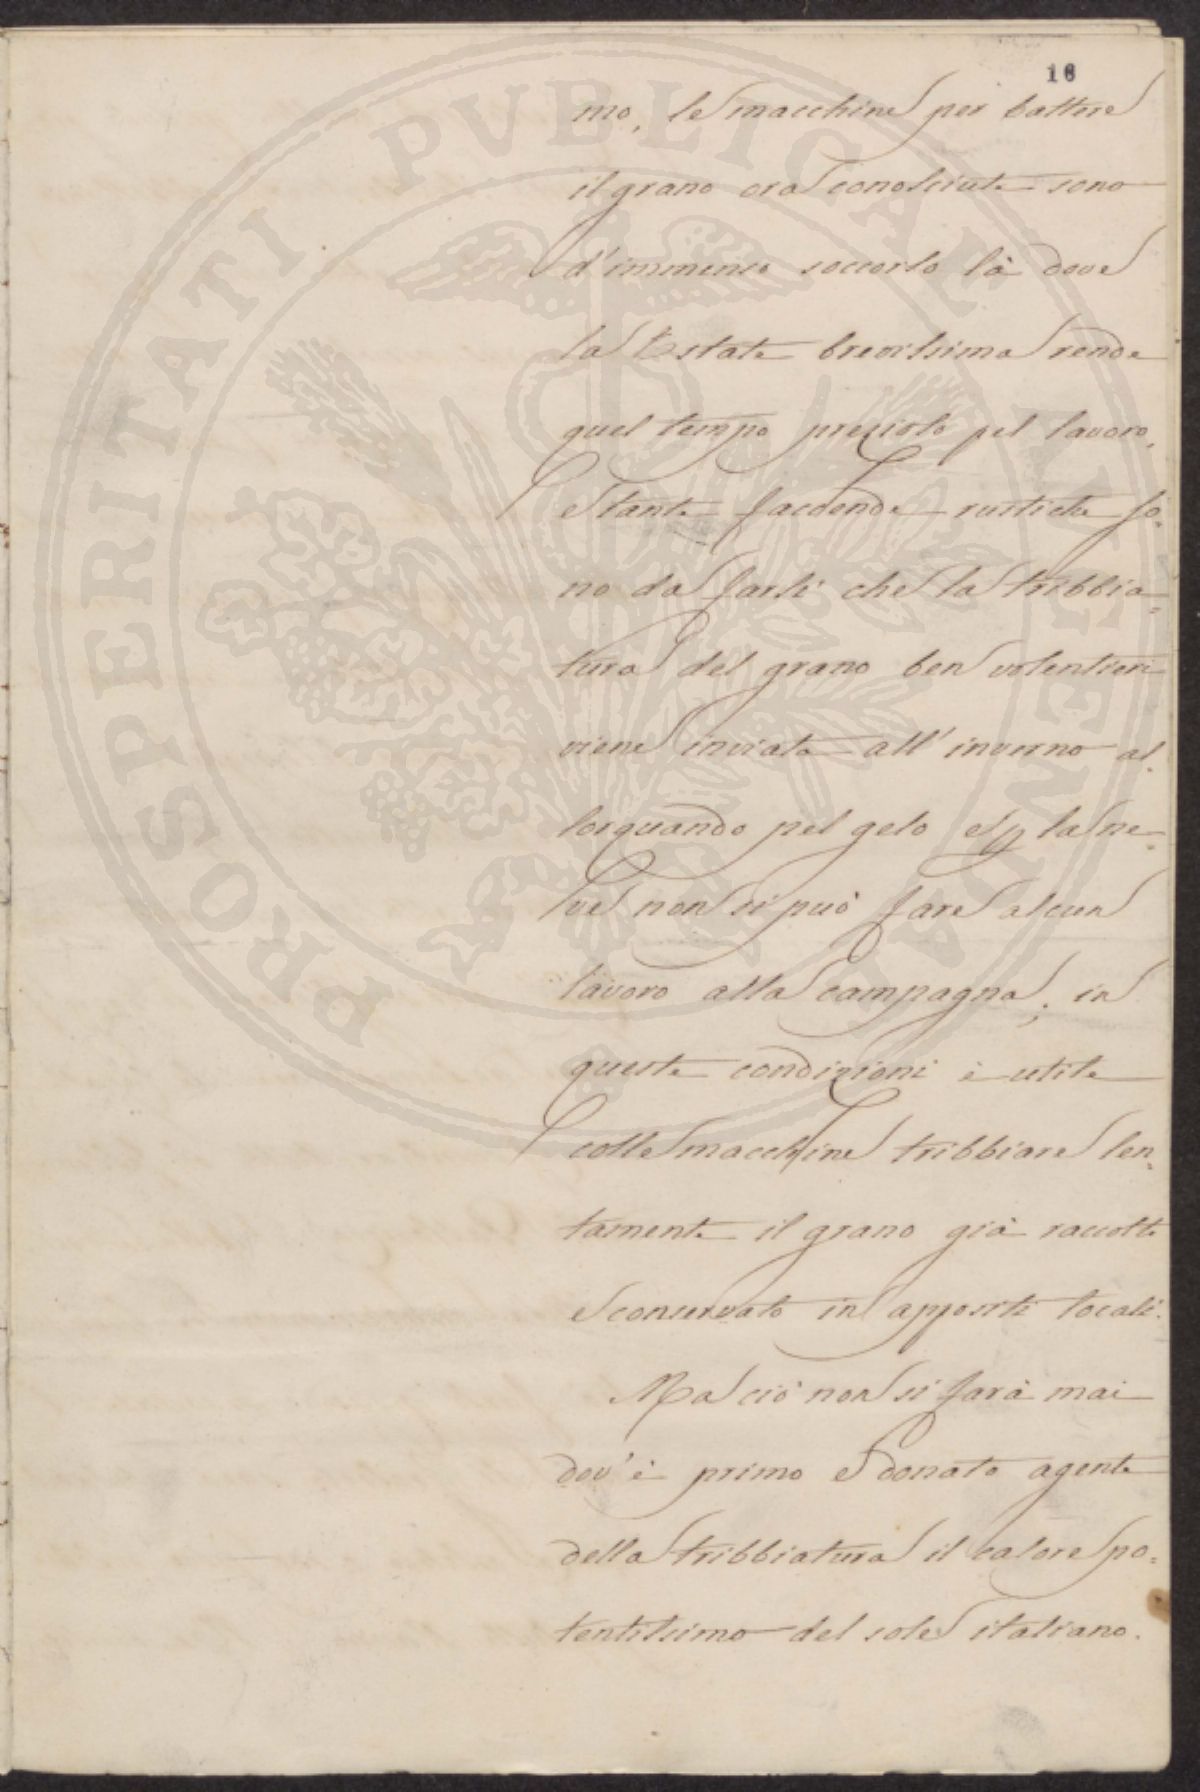 16
mo, le macchine per battere
il grano ora conosciute sono
d'immenso soccorso là dove
la Estate brevissima rende
quel tempo prezioso pel lavoro.
E tante faccende rustiche so-
no da farsi che la tribbia=
tura del grano ben volentieri
viene inviata all'inverno al-
lorquando pel gelo e p la ne-
ve non si può fare alcun
lavoro alla campagna; in
queste condizioni è utile
colle macchine tribbiare len-
tamente il grano già raccolto
e conservato in appositi locali.
Ma ciò non si farà mai
dov'è primo e donato agente
della tribbiatura il calore po=
tentissimo del sole italiano.
PROSPERITATI PVBLICAE AVGENDAE